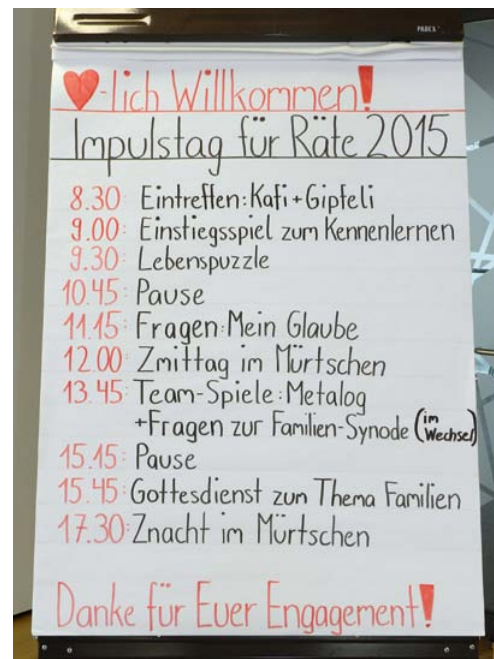 ♥-lich Willkommen!
Impulstag für Räte 2015
8.30: Eintreffen: Kafi + Gipfeli
9.00: Einstiegsspiel zum Kennenlernen
9.30: Lebenspuzzle
10.45: Pause
11.15: Fragen: Mein Glaube
12.00: Zmittag im Mürtschen
13.45: Team-Spiele: Metalog
+Fragen zur Familien-Synode (im Wechsel)
15.15: Pause
15.45: Gottesdienst zum Thema Familien
17.30: Znacht im Mürtschen
Danke für Euer Engagement!